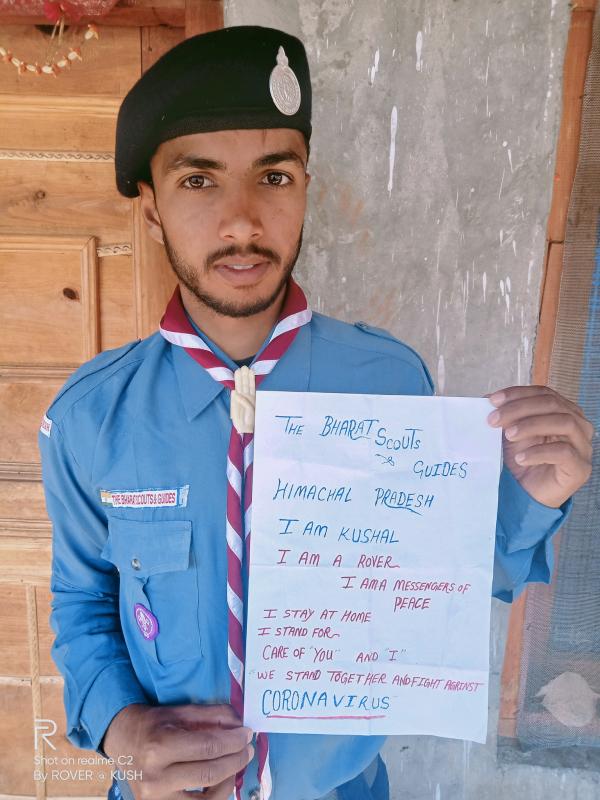 THE BHARAT SCOUTS
& GUIDES
HIMACHAL PRADESH
I AM KUSHAL
I AM A ROVER
I AM A MESSENGERS OF
PEACE
I STAY AT HOME
I STAND FOR
CARE OF "YOU" AND "I"
"WE STAND TOGETHER AND FIGHT AGAINST
CORONAVIRUS"
THE BHARAT SCOUTS & GUIDES
R
Shot on realme C2
By ROVER @ KUSH